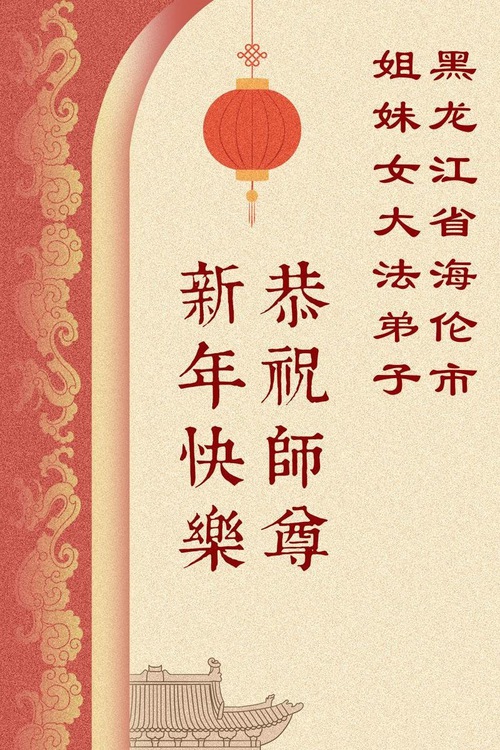 黑龙江省海伦市
姐妹女大法弟子
恭祝師尊
新年快樂